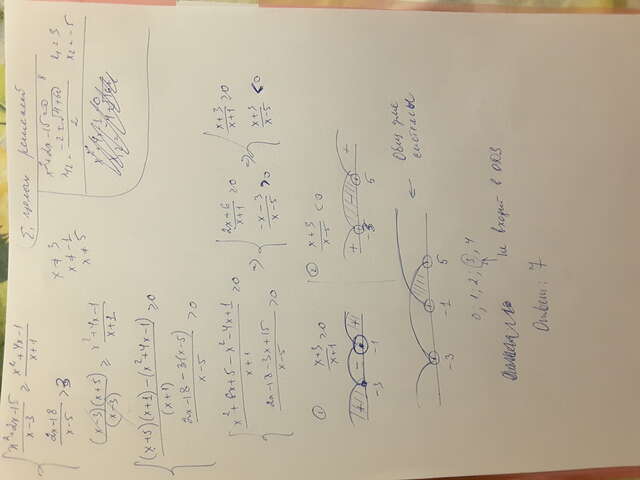 x²+2x-15 / x-3 ≥ x²+4x-1 / x+1
2x-18 / x-5 > 3
x ≠ 3
x ≠ -1
x ≠ 5
Σ целых решений
x²+2x-15=0
x₁,₂ = -2±√4+60 / 2
x₁ = 3
x₂ = -5
(x-3)(x+5) / (x-3) ≥ x²+4x-1 / x+1
(x+5)(x+1) - (x²+4x-1) / (x+1) ≥ 0
2x-18-3(x-5) / x-5 > 0
x²+6x+5-x²-4x+1 / x+1 ≥ 0
2x-18-3x+15 / x-5 > 0
⇒ 2x+6 / x+1 ≥ 0
-x-3 / x-5 > 0
⇒ x+3 / x+1 ≥ 0
x+3 / x-5 < 0
① x+3 / x+1 ≥ 0
② x+3 / x-5 < 0
+ - +
-3 -1
+ - +
-3 5
-3 -1 5
← Общ для системы
0; 1; 2; 3; 4
не входит в ОДЗ
Ответ: 7